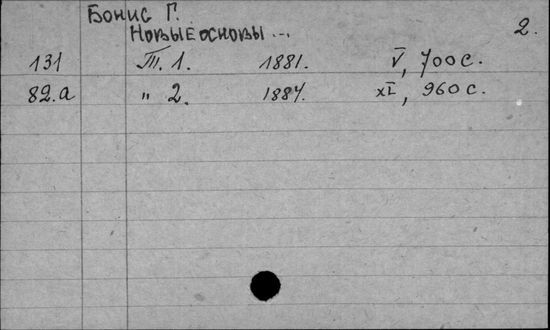 Бонис Г.
Новые основы ...
2.
131 Т. 1. 1881. V, 700 с.
82.а " 2. 1884. XI, 960 с.